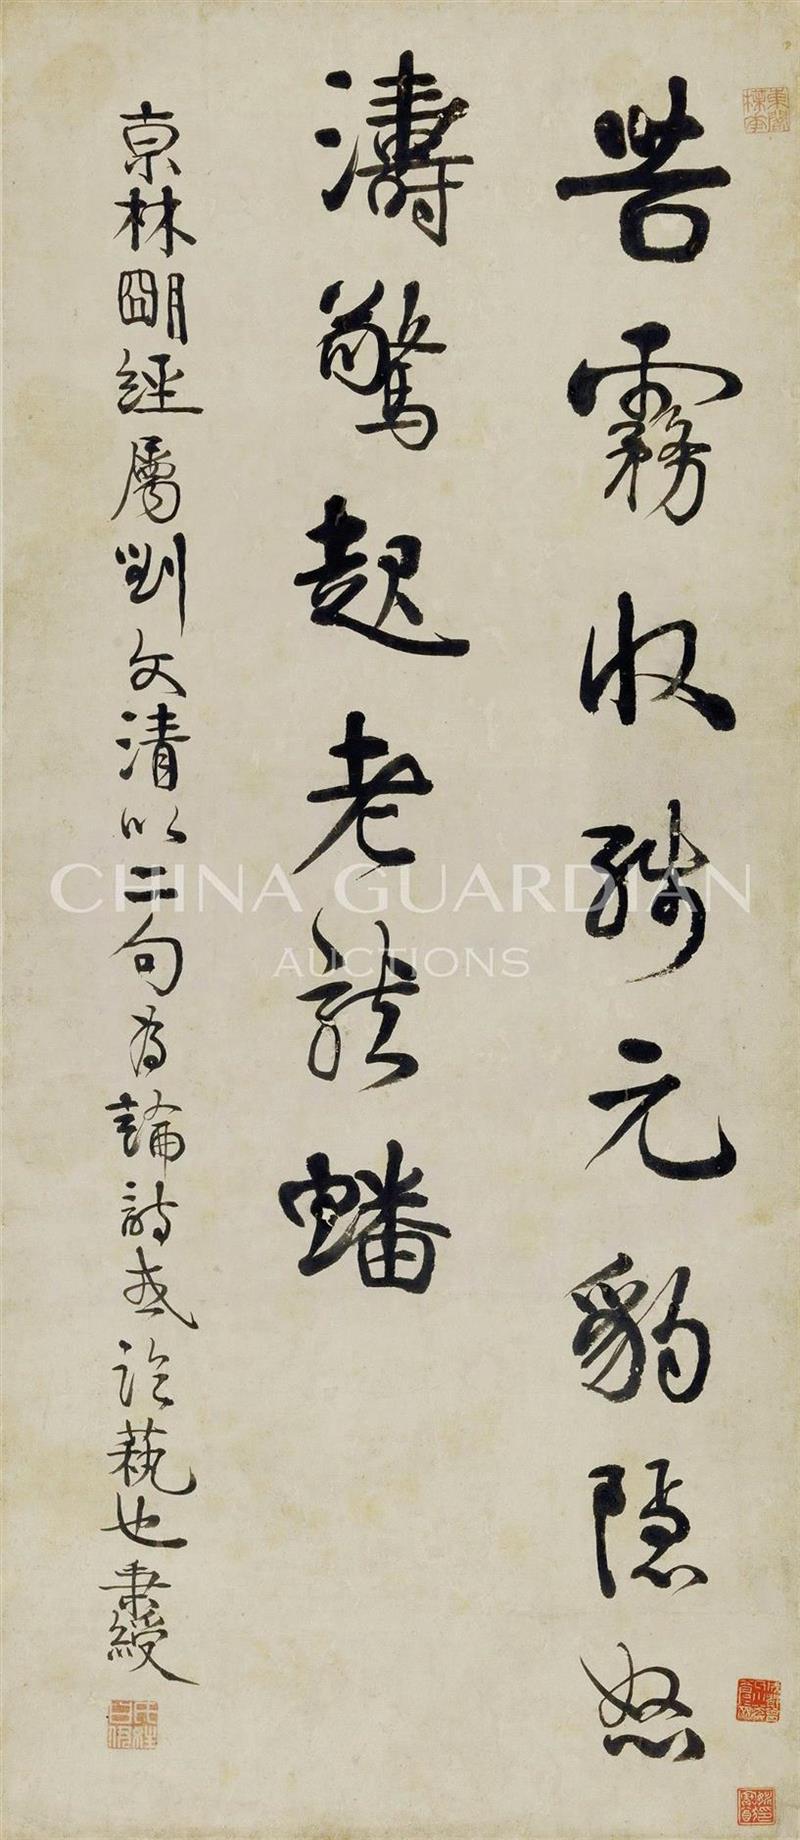 苦霧收殘元豹隱怒
濤驚起老龍蟠
京林朙經屬劉文清以二句為論詩或論藝也秉綬
CHINA GUARDIAN
AUCTIONS